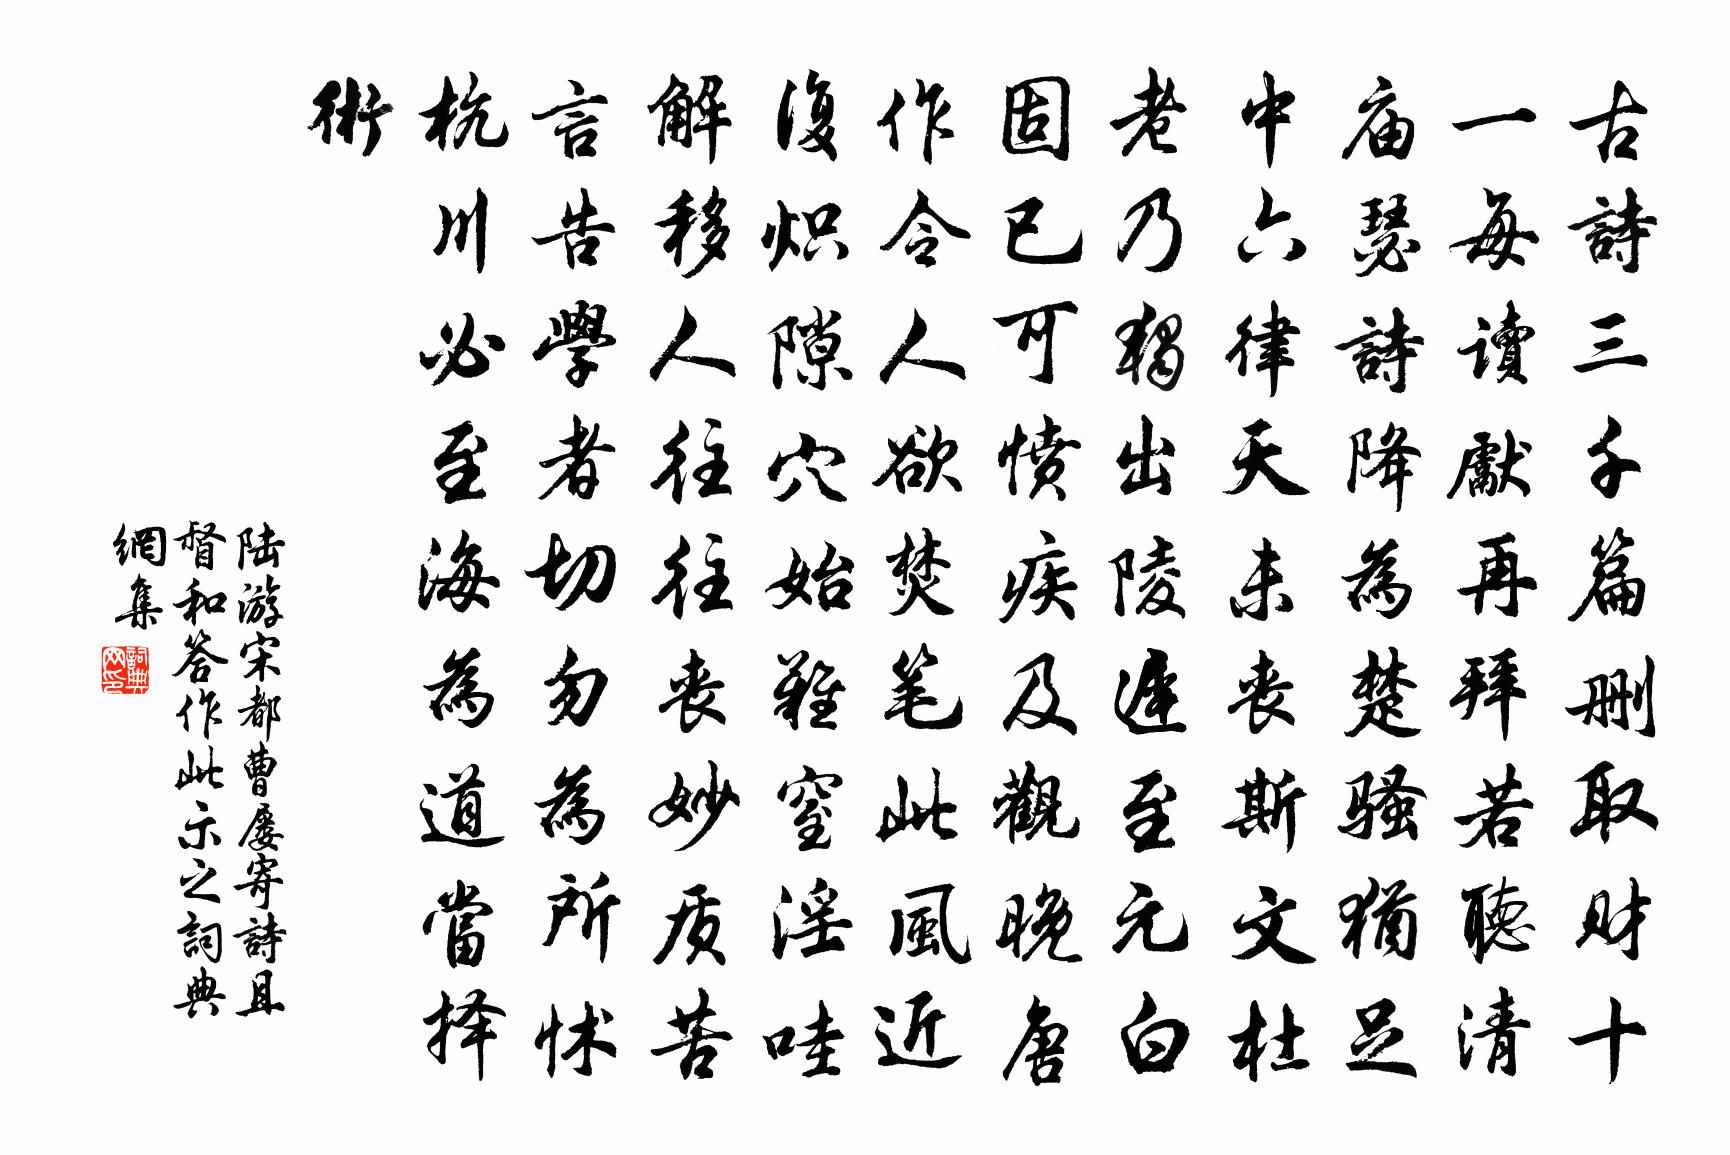 古詩三千篇删取财十
一每读獻再拜若聽清
庙瑟詩降為楚骚猶足
中六律天未丧斯文杜
老乃獨出陵遲至元白
固已可愤疾及觀晚唐
作令人欲焚笔此風近
復炽隙穴始難窒淫哇
解移人往往丧妙质苦
言告學者切勿為所怵
杭川必至海為道當择
術
陆游宋都曹屡寄詩且
督和答作此示之詞典
網集
詞典网印